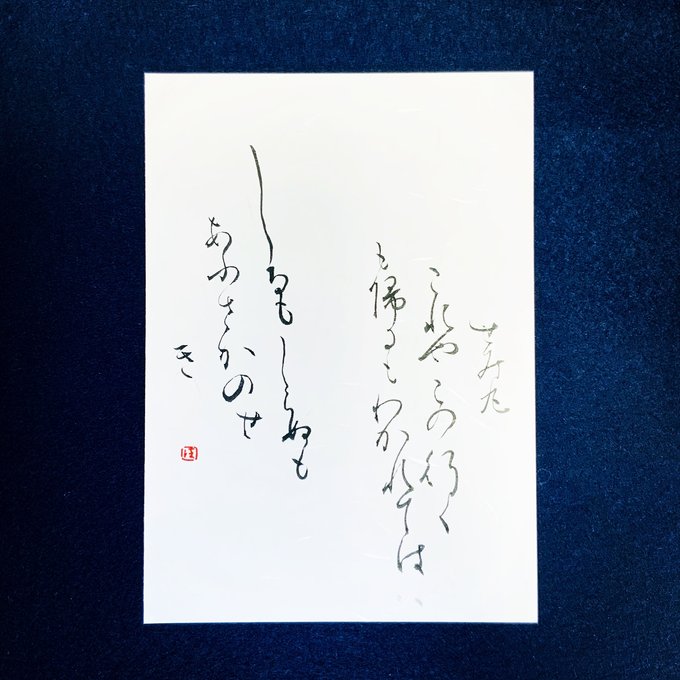 せみ丸
これやこの行く
も帰るもわかれては
しるもしらぬも
あふさかのせ
き